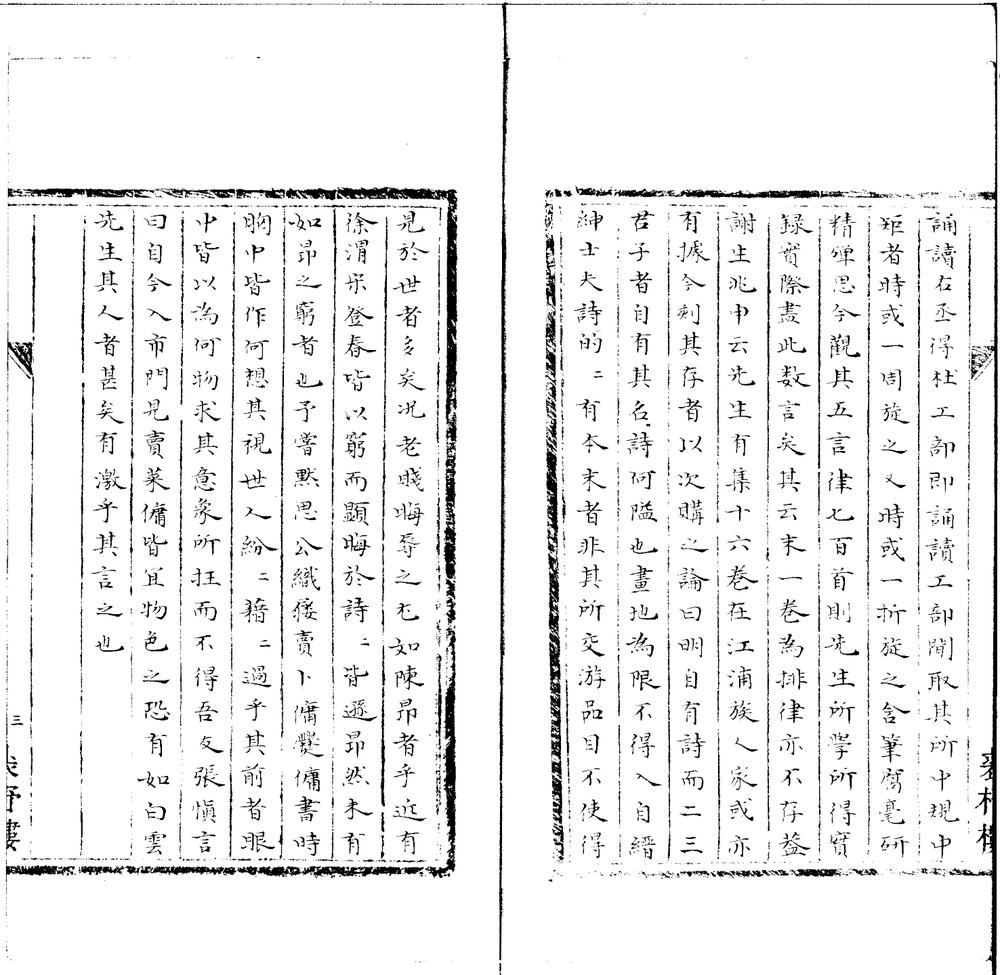 誦讀右丞得杜工部即誦讀工部間取其所中規中
矩者時或一周旋之又時或一折旋之含筆腐毫研
精殫思今觀其五言律七百首則先生所學所得實
錄實際盡此数言矣其云末一卷為排律亦不存葢
謝生兆申云先生有集十六卷在江浦族人家或亦
有據今刻其存者以次購之論曰明自有詩而二三
君子者自有其名詩何隘也畫地為限不得入自縉
紳士夫詩的〻有本末者非其所交游品目不使得
見於世者多矣况老賤晦辱之尤如陳昂者乎近有
徐渭宋登春皆以窮而顯晦於詩〻皆遜昂然未有
如昂之窮者也予嘗默思公織屨賣卜傭爨傭書時
胸中皆作何想其視世人紛〻藉〻過乎其前者眼
中皆以為何物求其意象所在而不得吾友張慎言
曰自今入市門見賣菜傭皆宜物色之恐有如白雲
先生其人者甚矣有激乎其言之也
三